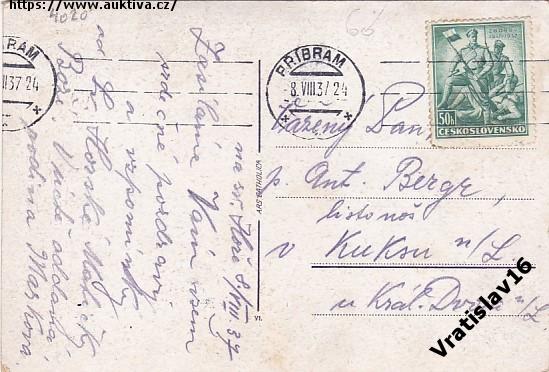 https://www.auktiva.cz/
4020
66
PŘÍBRAM
VIII 37 24
PŘÍBRAM
8.VIII.37 24
ZBOROV
1917-1937
50h
ČESKOSLOVENSKO
na sv. Hoře 8/VIII 37
Zasíláme Vám všem
srdečné pozdravy
a vzpomínky
od Sv. Horské Matičky
Boží Vaše oddaná
rodina Markova.
ARS CATHOLICA
VI.
Vážený Pan
p. Ant. Bergr,
listonoš
v Kuksu n/L
u Král. Dvora n/L
Vratislav16